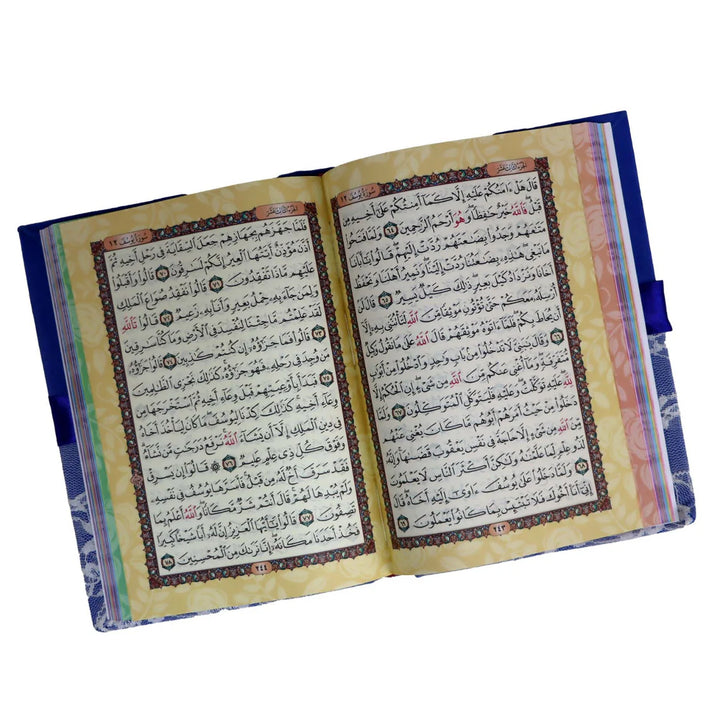 الجزء الثالث عشر
سورة يوسف ١٢
قَالَ هَلْ ءَامَنُكُمْ عَلَيْهِ إِلَّا كَمَآ أَمِنتُكُمْ عَلَىٰٓ أَخِيهِ مِن
قَبْلُ فَٱللَّهُ خَيْرٌ حَٰفِظًا وَهُوَ أَرْحَمُ ٱلرَّٰحِمِينَ ٦٤ وَلَمَّا فَتَحُوا۟
مَتَٰعَهُمْ وَجَدُوا۟ بِضَٰعَتَهُمْ رُدَّتْ إِلَيْهِمْ قَالُوا۟ يَٰٓأَبَانَا
مَا نَبْغِى هَٰذِهِۦ بِضَٰعَتُنَا رُدَّتْ إِلَيْنَا وَنَمِيرُ أَهْلَنَا وَنَحْفَظُ
أَخَانَا وَنَزْدَادُ كَيْلَ بَعِيرٍ ذَٰلِكَ كَيْلٌ يَسِيرٌ ٦٥ قَالَ لَنْ
أُرْسِلَهُۥ مَعَكُمْ حَتَّىٰ تُؤْتُونِ مَوْثِقًا مِّنَ ٱللَّهِ لَتَأْتُنَّنِى بِهِۦٓ إِلَّآ
أَن يُحَاطَ بِكُمْ فَلَمَّآ ءَاتَوْهُ مَوْثِقَهُمْ قَالَ ٱللَّهُ عَلَىٰ مَا نَقُولُ وَكِيلٌ ٦٦
وَقَالَ يَٰبَنِىَّ لَا تَدْخُلُوا۟ مِنۢ بَابٍ وَٰحِدٍ وَٱدْخُلُوا۟ مِنْ أَبْوَٰبٍ
مُّتَفَرِّقَةٍ وَمَآ أُغْنِى عَنكُم مِّنَ ٱللَّهِ مِن شَىْءٍ إِنِ ٱلْحُكْمُ إِلَّا
لِلَّهِ عَلَيْهِ تَوَكَّلْتُ وَعَلَيْهِ فَلْيَتَوَكَّلِ ٱلْمُتَوَكِّلُونَ ٦٧ وَلَمَّا
دَخَلُوا۟ مِنْ حَيْثُ أَمَرَهُمْ أَبُوهُم مَّا كَانَ يُغْنِى عَنْهُم
مِّنَ ٱللَّهِ مِن شَىْءٍ إِلَّا حَاجَةً فِى نَفْسِ يَعْقُوبَ قَضَىٰهَا وَإِنَّهُۥ
لَذُو عِلْمٍ لِّمَا عَلَّمْنَٰهُ وَلَٰكِنَّ أَكْثَرَ ٱلنَّاسِ لَا يَعْلَمُونَ ٦٨
وَلَمَّا دَخَلُوا۟ عَلَىٰ يُوسُفَ ءَاوَىٰٓ إِلَيْهِ أَخَاهُ قَالَ
إِنِّىٓ أَنَا۠ أَخُوكَ فَلَا تَبْتَئِسْ بِمَا كَانُوا۟ يَعْمَلُونَ ٦٩
٢٤٣
الجزء الثالث عشر
سورة يوسف ١٢
فَلَمَّا جَهَّزَهُم بِجَهَازِهِمْ جَعَلَ ٱلسِّقَايَةَ فِى رَحْلِ أَخِيهِ ثُمَّ
أَذَّنَ مُؤَذِّنٌ أَيَّتُهَا ٱلْعِيرُ إِنَّكُمْ لَسَٰرِقُونَ ٧٠ قَالُوا۟ وَأَقْبَلُوا۟
عَلَيْهِم مَّاذَا تَفْقِدُونَ ٧١ قَالُوا۟ نَفْقِدُ صُوَاعَ ٱلْمَلِكِ
وَلِمَن جَآءَ بِهِۦ حِمْلُ بَعِيرٍ وَأَنَا۠ بِهِۦ زَعِيمٌ ٧٢ قَالُوا۟ تَٱللَّهِ
لَقَدْ عَلِمْتُم مَّا جِئْنَا لِنُفْسِدَ فِى ٱلْأَرْضِ وَمَا كُنَّا سَٰرِقِينَ
٧٣ قَالُوا۟ فَمَا جَزَٰٓؤُهُۥٓ إِن كُنتُمْ كَٰذِبِينَ ٧٤ قَالُوا۟ جَزَٰٓؤُهُۥ
مَن وُجِدَ فِى رَحْلِهِۦ فَهُوَ جَزَٰٓؤُهُۥ كَذَٰلِكَ نَجْزِى ٱلظَّٰلِمِينَ
٧٥ فَبَدَأَ بِأَوْعِيَتِهِمْ قَبْلَ وِعَآءِ أَخِيهِ ثُمَّ ٱسْتَخْرَجَهَا مِن
وِعَآءِ أَخِيهِ كَذَٰلِكَ كِدْنَا لِيُوسُفَ مَا كَانَ لِيَأْخُذَ أَخَاهُ
فِى دِينِ ٱلْمَلِكِ إِلَّآ أَن يَشَآءَ ٱللَّهُ نَرْفَعُ دَرَجَٰتٍ مَّن نَّشَآءُ
وَفَوْقَ كُلِّ ذِى عِلْمٍ عَلِيمٌ ٧٦ ۞ قَالُوٓا۟ إِن يَسْرِقْ
فَقَدْ سَرَقَ أَخٌ لَّهُۥ مِن قَبْلُ فَأَسَرَّهَا يُوسُفُ فِى نَفْسِهِۦ
وَلَمْ يُبْدِهَا لَهُمْ قَالَ أَنتُمْ شَرٌّ مَّكَانًا وَٱللَّهُ أَعْلَمُ بِمَا
تَصِفُونَ ٧٧ قَالُوا۟ يَٰٓأَيُّهَا ٱلْعَزِيزُ إِنَّ لَهُۥٓ أَبًا شَيْخًا كَبِيرًا
فَخُذْ أَحَدَنَا مَكَانَهُۥٓ إِنَّا نَرَىٰكَ مِنَ ٱلْمُحْسِنِينَ ٧٨
٢٤٤